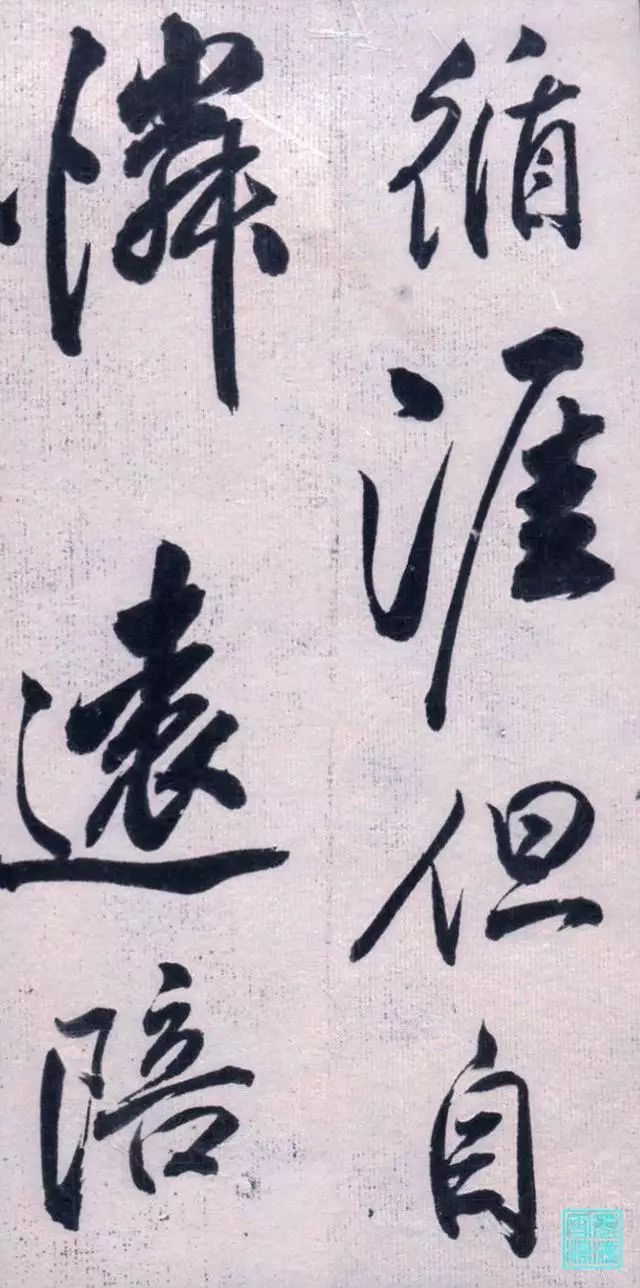 循涯但自
憐遠陪